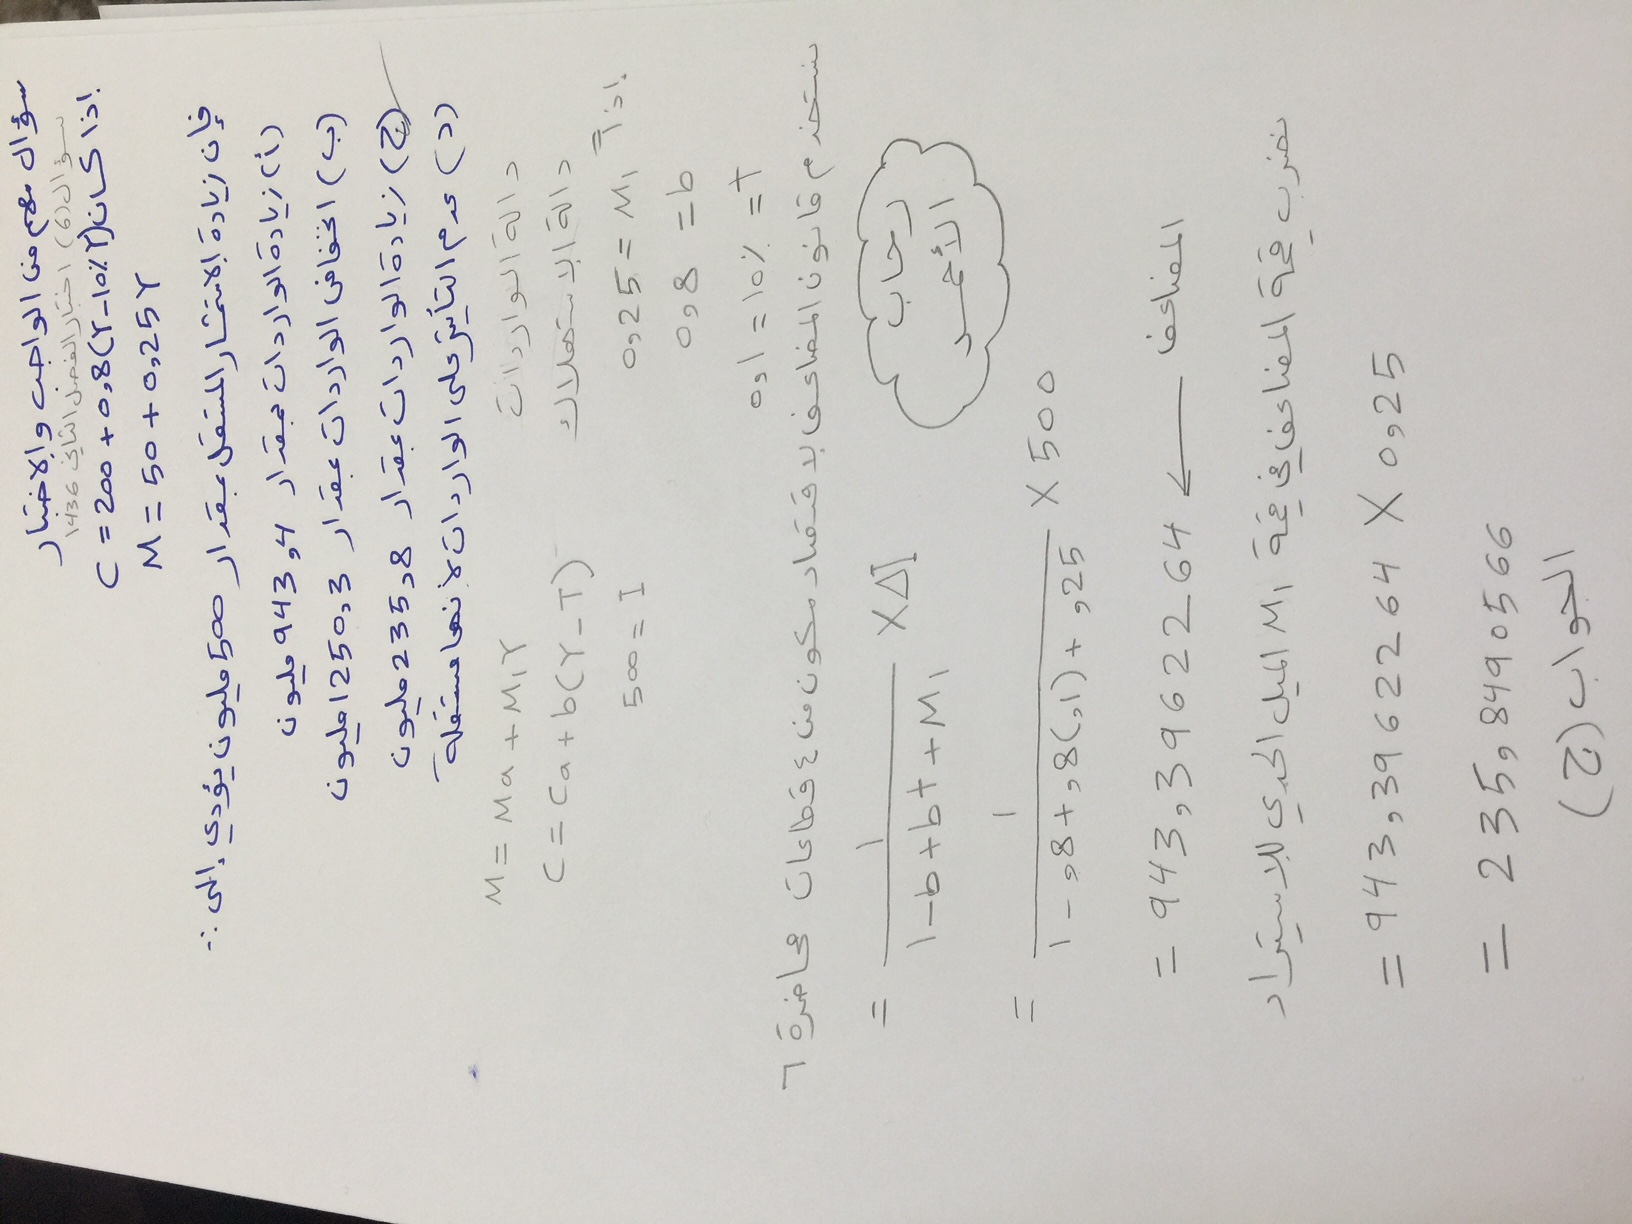 سؤال مهم من الواجب والإختبار
سؤال (6) اختبار الفصل الثاني 1436
إذا كان C = 200 + 0,8(Y-10%Y)
M = 50 + 0,25Y
فإن زيادة الاستثمار المستقل بمقدار 500 مليون يؤدي إلى :-
(أ) زيادة الواردات بمقدار 943,4 مليون
(ب) انخفاض الواردات بمقدار 1250,3 مليون
(ج) زيادة الواردات بمقدار 235,8 مليون
(د) عدم التأثير على الواردات لأنها مستقلة
دالة الواردات M = Ma + M1Y
دالة الاستهلاك C = Ca + b(Y-T)
إذاً = 0,25 = M1 500 = I
0,8 = b
0,1 = 10% = t
نستخدم قانون المضاعف لاقتصاد مكون من ٤ قطاعات محاضرة ٦
= 1 / 1-b+bt+M1 X ΔI
رحاب
الأحمد
= 1 / 1-,8+,8(,1)+,25 X 500
= 943,39622264 ← المضاعف
نضرب قيمة المضاعف في قيمة M1 الميل الحدي للاستيراد
= 943,39622264 X 0,25
= 235,8490566
الجواب (ج)